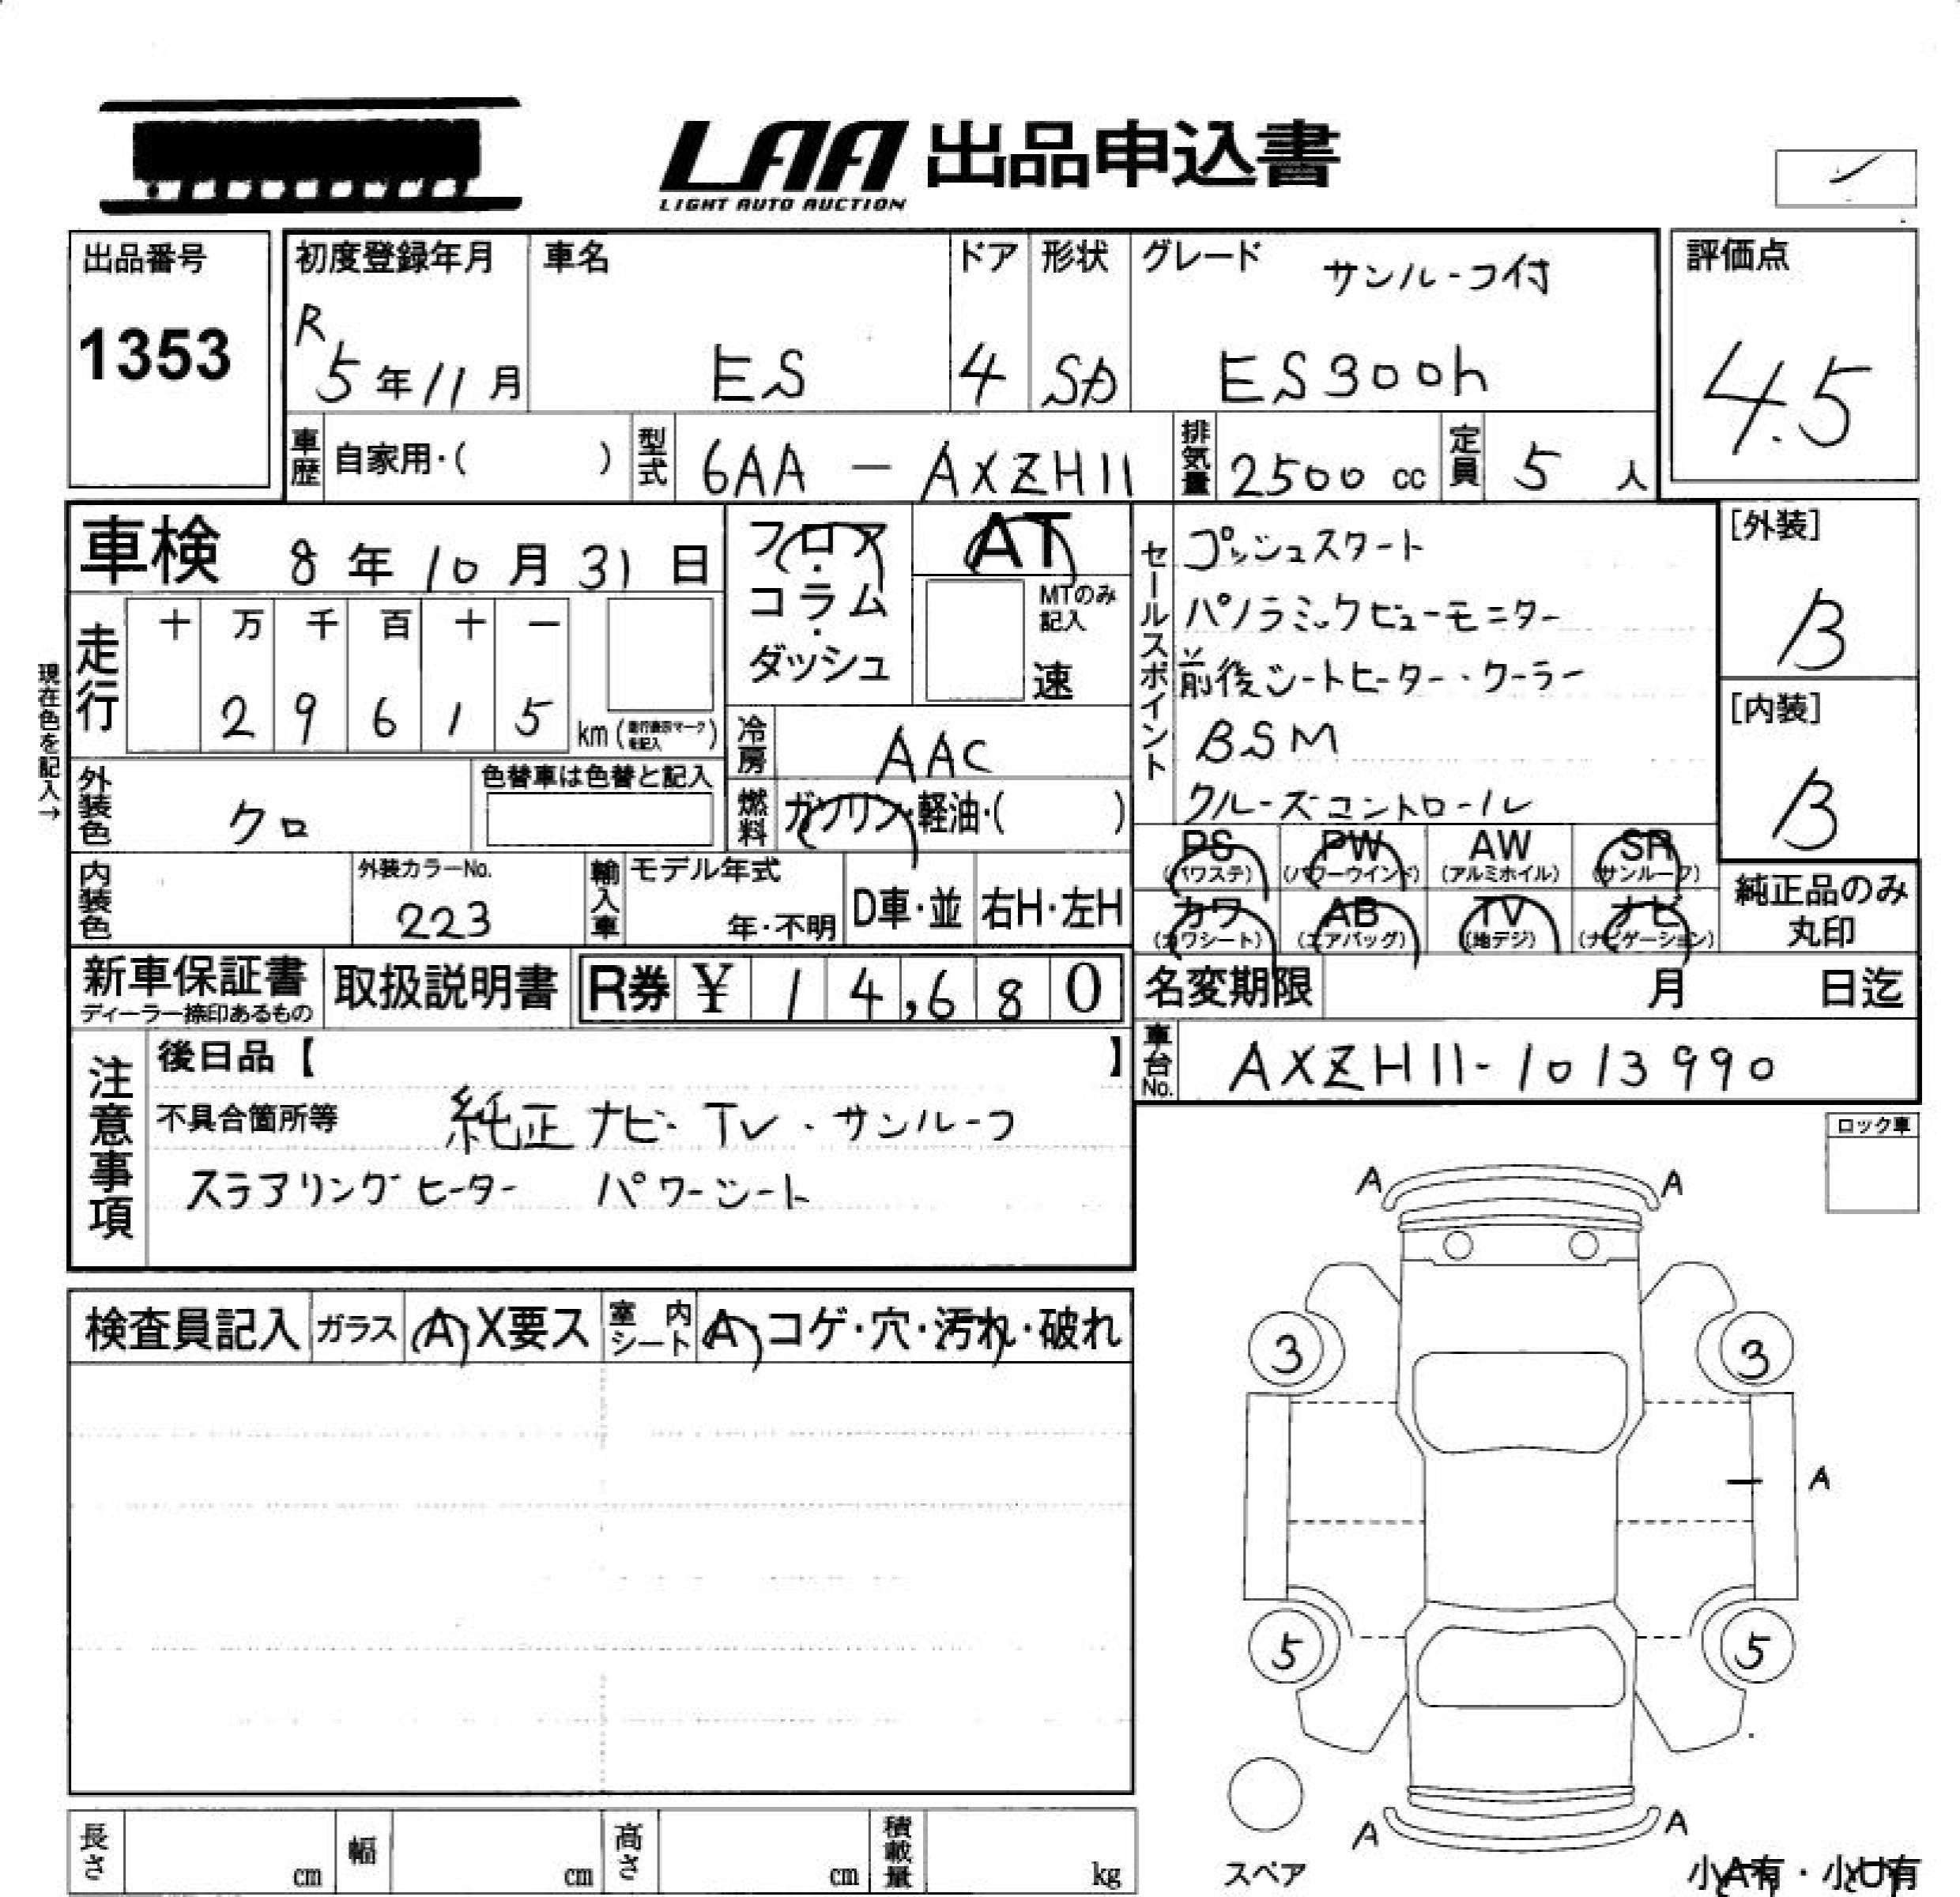 LAA 出品申込書
LIGHT AUTO AUCTION
出品番号
1353
初度登録年月
R
5年11月
車名
ES
ドア
4
形状
SD
グレード
サンルーフ付
ES300h
評価点
4.5
車歴 自家用・( )
型式 6AA - AXZH11
排気量 2500 cc
定員 5 人
車検 8年10月31日
フロア・コラム・ダッシュ
AT
MTのみ記入
速
セールスポイント
プッシュスタート
パノラミックビューモニター
前後シートヒーター・クーラー
BSM
クルーズコントロール
[外装]
B
[内装]
B
現在色を記入→
走行
十 万 千 百 十 一
2 9 6 1 5 km (走行表示マークを記入)
冷房 AAC
外装色 クロ
色替車は色替と記入
燃料 ガソリン・軽油・( )
PS (パワステ) PW (パワーウインド) AW (アルミホイル) SR (サンルーフ)
カワ (カワシート) AB (エアバッグ) TV (地デジ) ナビ (ナビゲーション)
純正品のみ丸印
内装色
外装カラーNo.
223
輸入車 モデル年式
年・不明
D車・並
右H・左H
新車保証書
ディーラー捺印あるもの
取扱説明書
R券 ¥ 14,680
名変期限 月 日迄
車台No. AXZH11-1013990
注意事項
後日品【 】
不具合箇所等 純正ナビ・TV・サンルーフ
ステアリングヒーター パワーシート
ロック車
検査員記入 ガラス A・X要ス 室内シート A・コゲ・穴・汚れ・破れ
A A
3 3
A
5 5
A A
スペア
小A有・小U有
長さ cm 幅 cm 高さ cm 積載量 kg